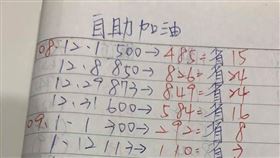 自助加油
08.12.1 500→485=省15
12.8 850→826=省24
12.29 873→849=省24
12.31 600→584=省16
09.1-1 300→292=省8
1-12 113→110=